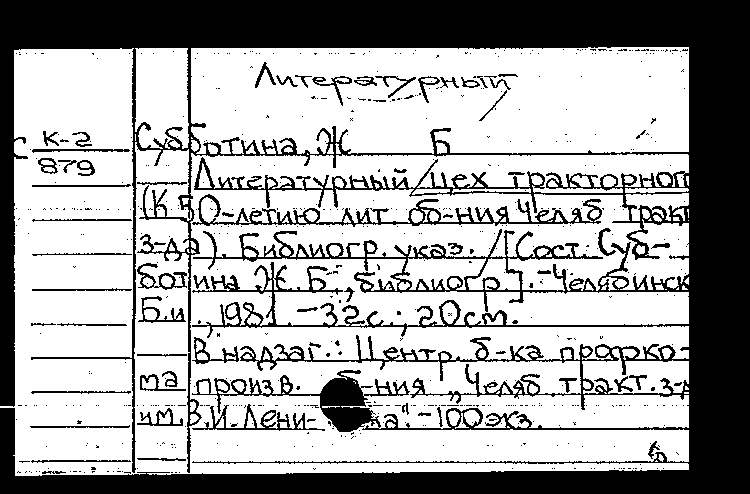 Литературный
К-2
879
Субботина, Ж Б
Литературный цех тракторног
(К 50-летию лит. об-ния Челяб тракт
з-да). Библиогр. указ. / [Сост. Суб-
ботина Ж. Б., библиогр.]. - Челябинск
Б.и., 1981. - 32 с.; 20 см.
В надзаг.: Центр. б-ка профко-
ма произв. б-ния "Челяб. тракт. з-д
им. В.И. Лени- ка". - 100 экз.